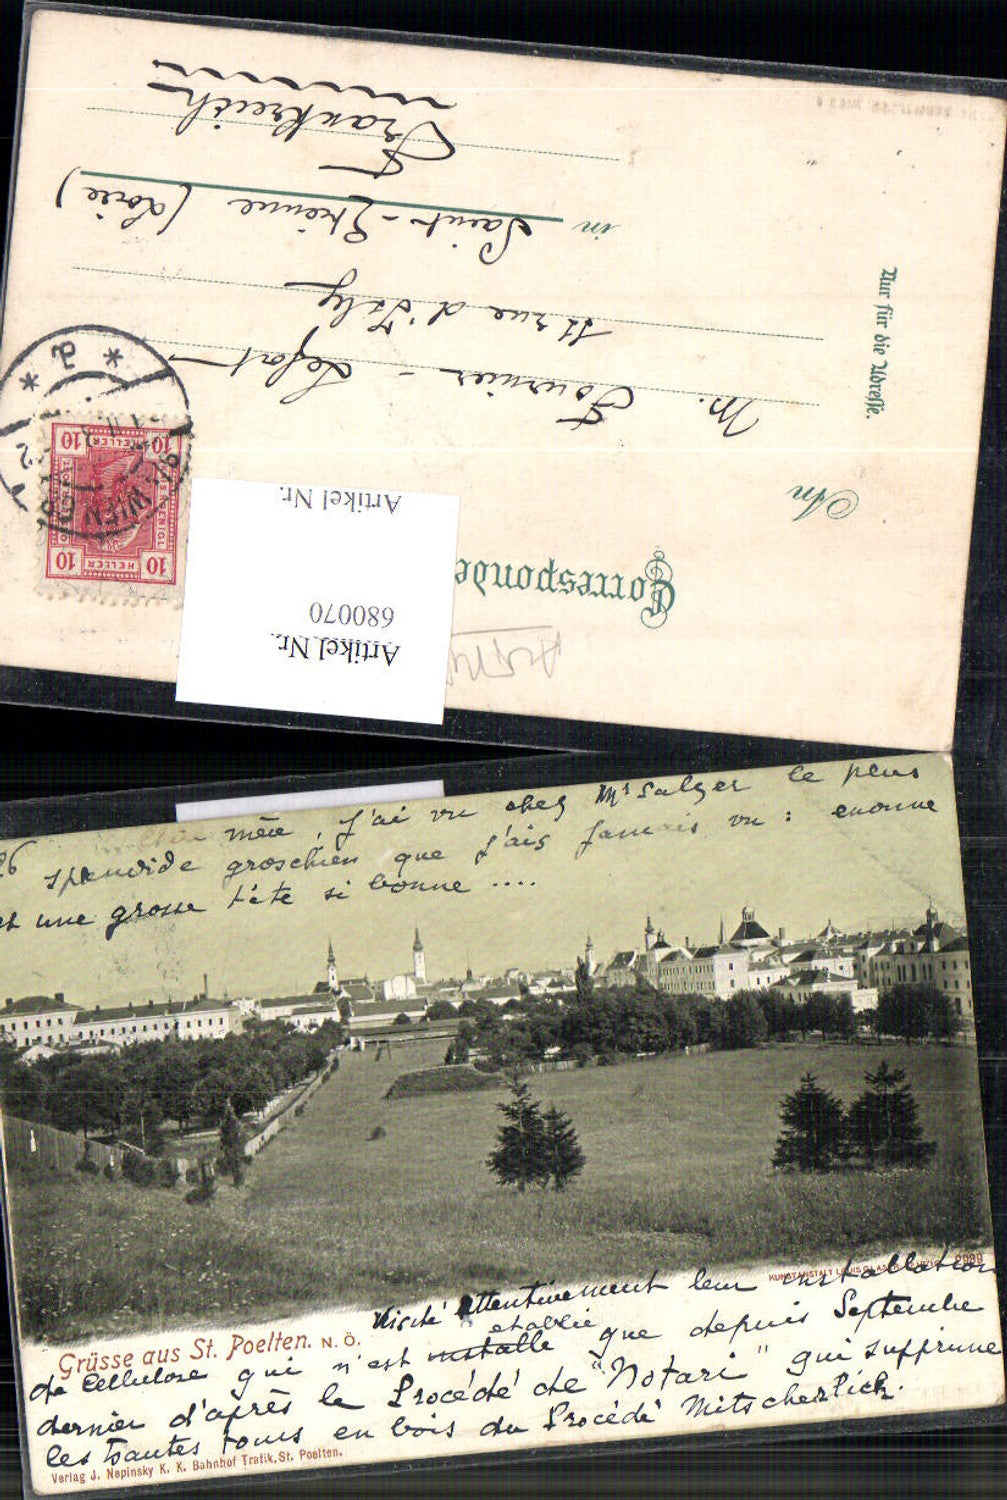 Correspondenz
An
M. Fournier - Lefort
11 rue d'Isly
in Saint-Etienne (Loire)
Frankreich
Nur für die Adresse.
10 10
HELLER
HELLER
10 10
WIEN
Artikel Nr.
680070
Artikel Nr.
mère, j'ai vu chez Mr Salzer le plus
splendide groschien que j'ais jamais vu : enorme
et une grosse tête si bonne ....
KUNSTANSTALT LOUIS GLASER, LEIPZIG 2099
Visité attentivement leur installation
etablie
Grüsse aus St. Poelten. N. Ö.
de Cellulose qui n'est installe que depuis Septembre
dernier d'après le Procédé de "Notari" qui supprime
les hautes tours en bois du Procédé Mitscherlich.
Verlag J. Nepinsky K. K. Bahnhof Trafik, St. Poelten.